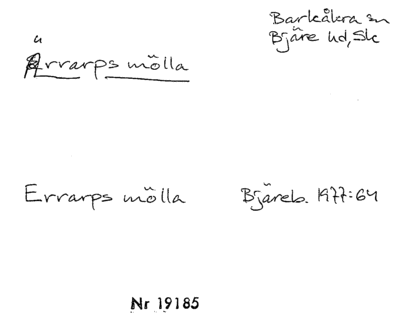 Barkåkra sn
Bjäre hd, Sk
Ärrarps mölla
Errarps mölla Bjäreb. 1977:64
Nr 19185